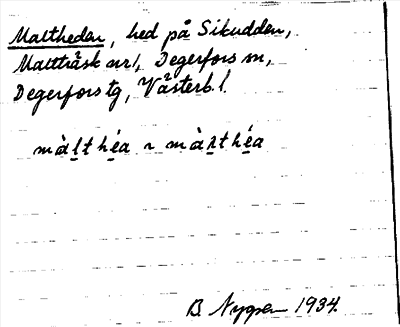 Maltheden, hed på Sikudden,
Malträsk nr1, Degerfors sn,
Degerfors tg, Västerb. l.
màḻthéa ~ màḻthéa
B. Nygren 1934.